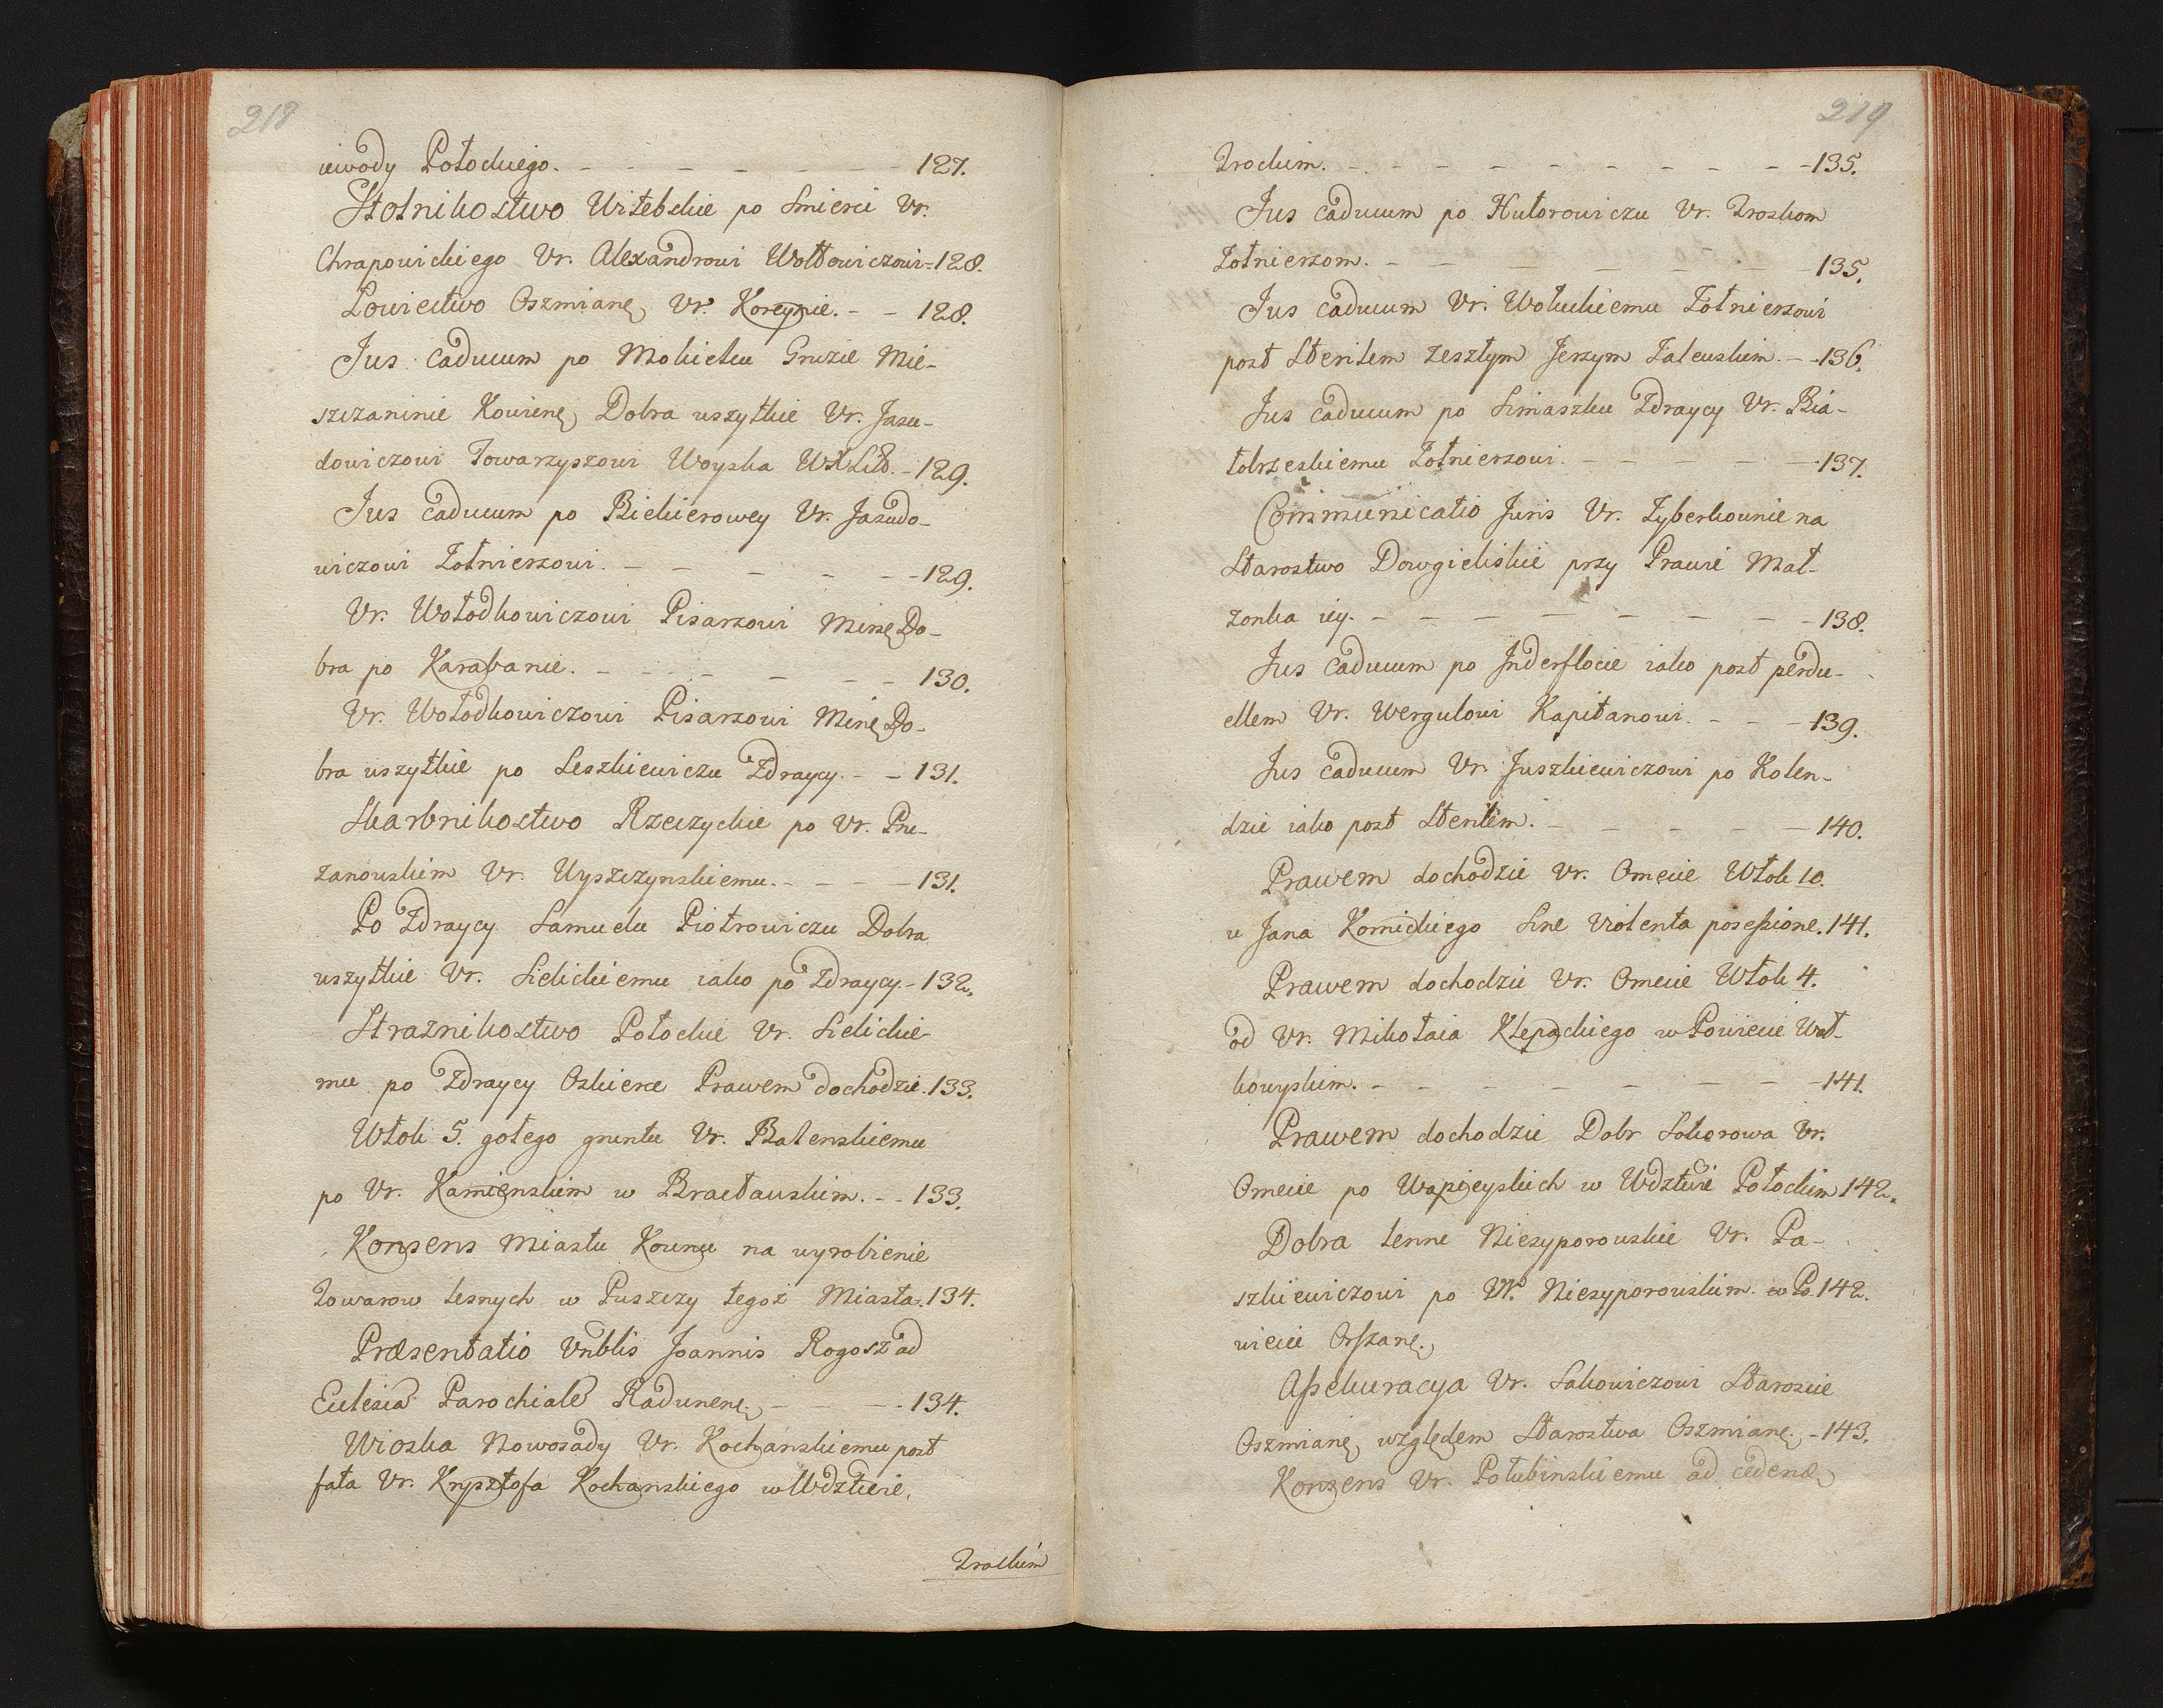 218
iewody Połockiego. - - - - - - - 127.
Stolnikostwo Witebskie po smierci Ur.
Chrapowickiego Ur. Alexandrowi Wołłowiczowi - 128.
Łowiectwo Oszmiane Ur. Koreywie. - - 128.
Jus caducum po Mokieku Gruzie Mie-
szczaninie Kowiene Dobra wszytkie Ur. Jasu-
dowiczowi Towarzyszowi Woyska WXLitt. - 129.
Jus caducum po Biekierowey Ur. Jasudo-
wiczowi Zołnierzowi. - - - - - - 129.
Ur. Wołodkowiczowi Pisarzowi Minse Do-
bra po Karabanie. - - - - - - 130.
Ur. Wołodkowiczowi Pisarzowi Mine Do-
bra wszytkie po Leszkiewiczu Zdraycy. - - 131.
Skarbnikostwo Rzeczyckie po Ur. Pru-
zanowskim Ur. Wyszczynskiemu. - - - - 131.
Po Zdraycy Samuelu Piotrowiczu Dobra
wszytkie Ur. Sielickiemu iako po Zdraycy. - 132.
Straznikostwo Połockie Ur. Sielickie-
mu po Zdraycy Oskierce Prawem dochodzić. 133.
Włok 5. gołego gruntu Ur. Balenskiemu
po Ur. Kamienskim w Bracławskim. - - 133.
Konsens Miastu Kownu na wyrobienie
Towarow lesnych w Puszczy tegoz Miasta. 134.
Præsentatio Vnblis Joannis Rogosz ad
Ecclesia Parochiale Radunene. - - - - 134.
Wioska Nowosady Ur. Kochanskiemu post
fata Ur. Krysztofa Kochanskiego w Wdztwie,
Trockim
219
Trockim. - - - - - - - - - - 135.
Jus caducum po Hutorowiczu Ur. Troskom
Zołnierzom. - - - - - - - - 135.
Jus caducum Ur. Wołuckiemu Zołnierzowi
post Sterilem zeszłym Jerzym Zalewskim. - - 136.
Jus caducum po Simaszku Zdraycy Ur. Bia-
łobrzeskiemu Zołnierzowi. - - - - - - 137.
Communicatio Juris Ur. Zyberkownie na
Starostwo Dowgieliskie przy Prawie Mał-
zonka iey. - - - - - - - - - 138.
Jus caducum po Inderflocie iako post perdu-
ellem Ur. Wergulowi Kapitanowi. - - - 139.
Jus caducum Ur. Juszkiewiczowi po Kolen-
dzie iako post Sterilem. - - - - - - 140.
Prawem dochodzić Ur. Omecie Włok 10.
u Jana Komickiego sine violenta possessione. 141.
Prawem dochodzić Ur. Omecie Włok 4.
od Ur. Mikołaia Klepackiego w Powiecie Woł-
kowyskim. - - - - - - - - - 141.
Prawem dochodzić Dobr Sokorowa Ur.
Omecie po Wapieyskich w Wdztwie Połockim 142.
Dobra lenne Niezyporowskie Ur. Pa-
szkiewiczowi po Ur. Niezyporowskim w Po 142.
wiecie Orszane.
Assekuracya Ur. Sakowiczowi Staroscie
Oszmiane względem Starostwa Oszmiane. - 143.
Konsens Ur. Połubinskiemu ad cedene